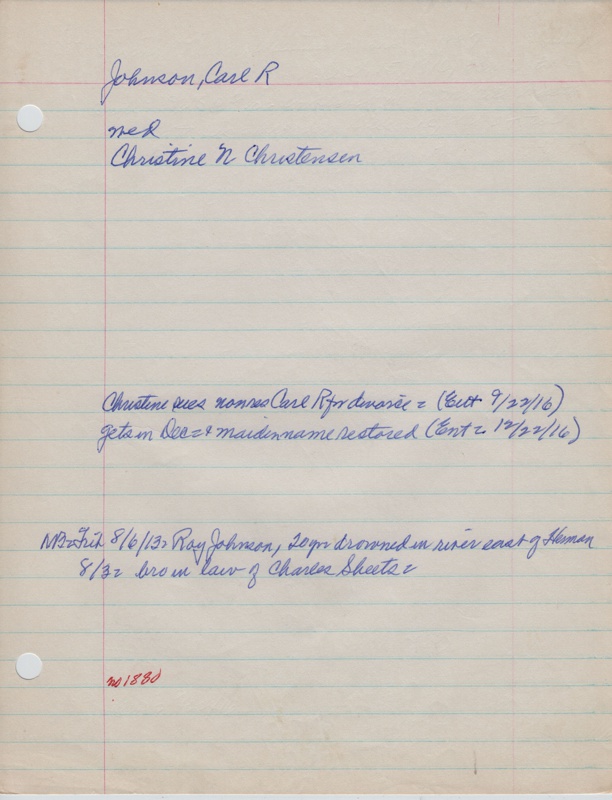 Johnson, Carl R
wed
Christine N Christensen
Christine sues nonres Carl R for divorce = (Ent 9/22/16)
gets in Dec = & maiden name restored (Ent = 12/22/16)
8/6/13 = Roy Johnson, 20 yr drowned in river east of Herman
8/3 = bro in law of Charles Sheets =
no 1880